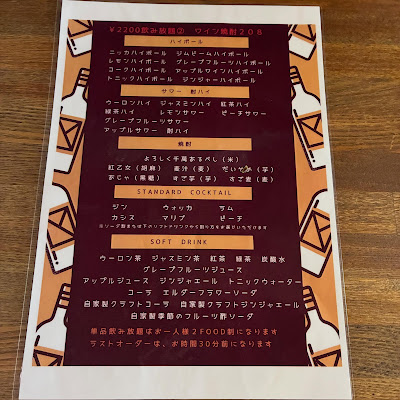 ¥2200飲み放題② ワイン焼酎208
ハイボール
ニッカハイボール ジムビームハイボール
レモンハイボール グレープフルーツハイボール
コークハイボール アップルワインハイボール
トニックハイボール ジンジャーハイボール
サワー 酎ハイ
ウーロンハイ ジャスミンハイ 紅茶ハイ
緑茶ハイ レモンサワー ピーチサワー
グレープフルーツサワー
アップルサワー 酎ハイ
焼酎
よろしく千萬あるべし(米)
紅乙女(胡麻) 麦汁(麦) だいやめ(芋)
れんと(黒糖) すご芋(芋) すご麦(麦)
STANDARD COCKTAIL
ジン ウォッカ ラム
カシス マリブ ピーチ
SOFT DRINK
ウーロン茶 ジャスミン茶 紅茶 緑茶 炭酸水
グレープフルーツジュース
アップルジュース ジンジャエール トニックウォーター
コーラ エルダーフラワーソーダ
自家製クラフトコーラ 自家製クラフトジンジャエール
自家製季節のフルーツ酢ソーダ
単品飲み放題はお一人様2FOOD制になります
ラストオーダーは、お時間30分前になります